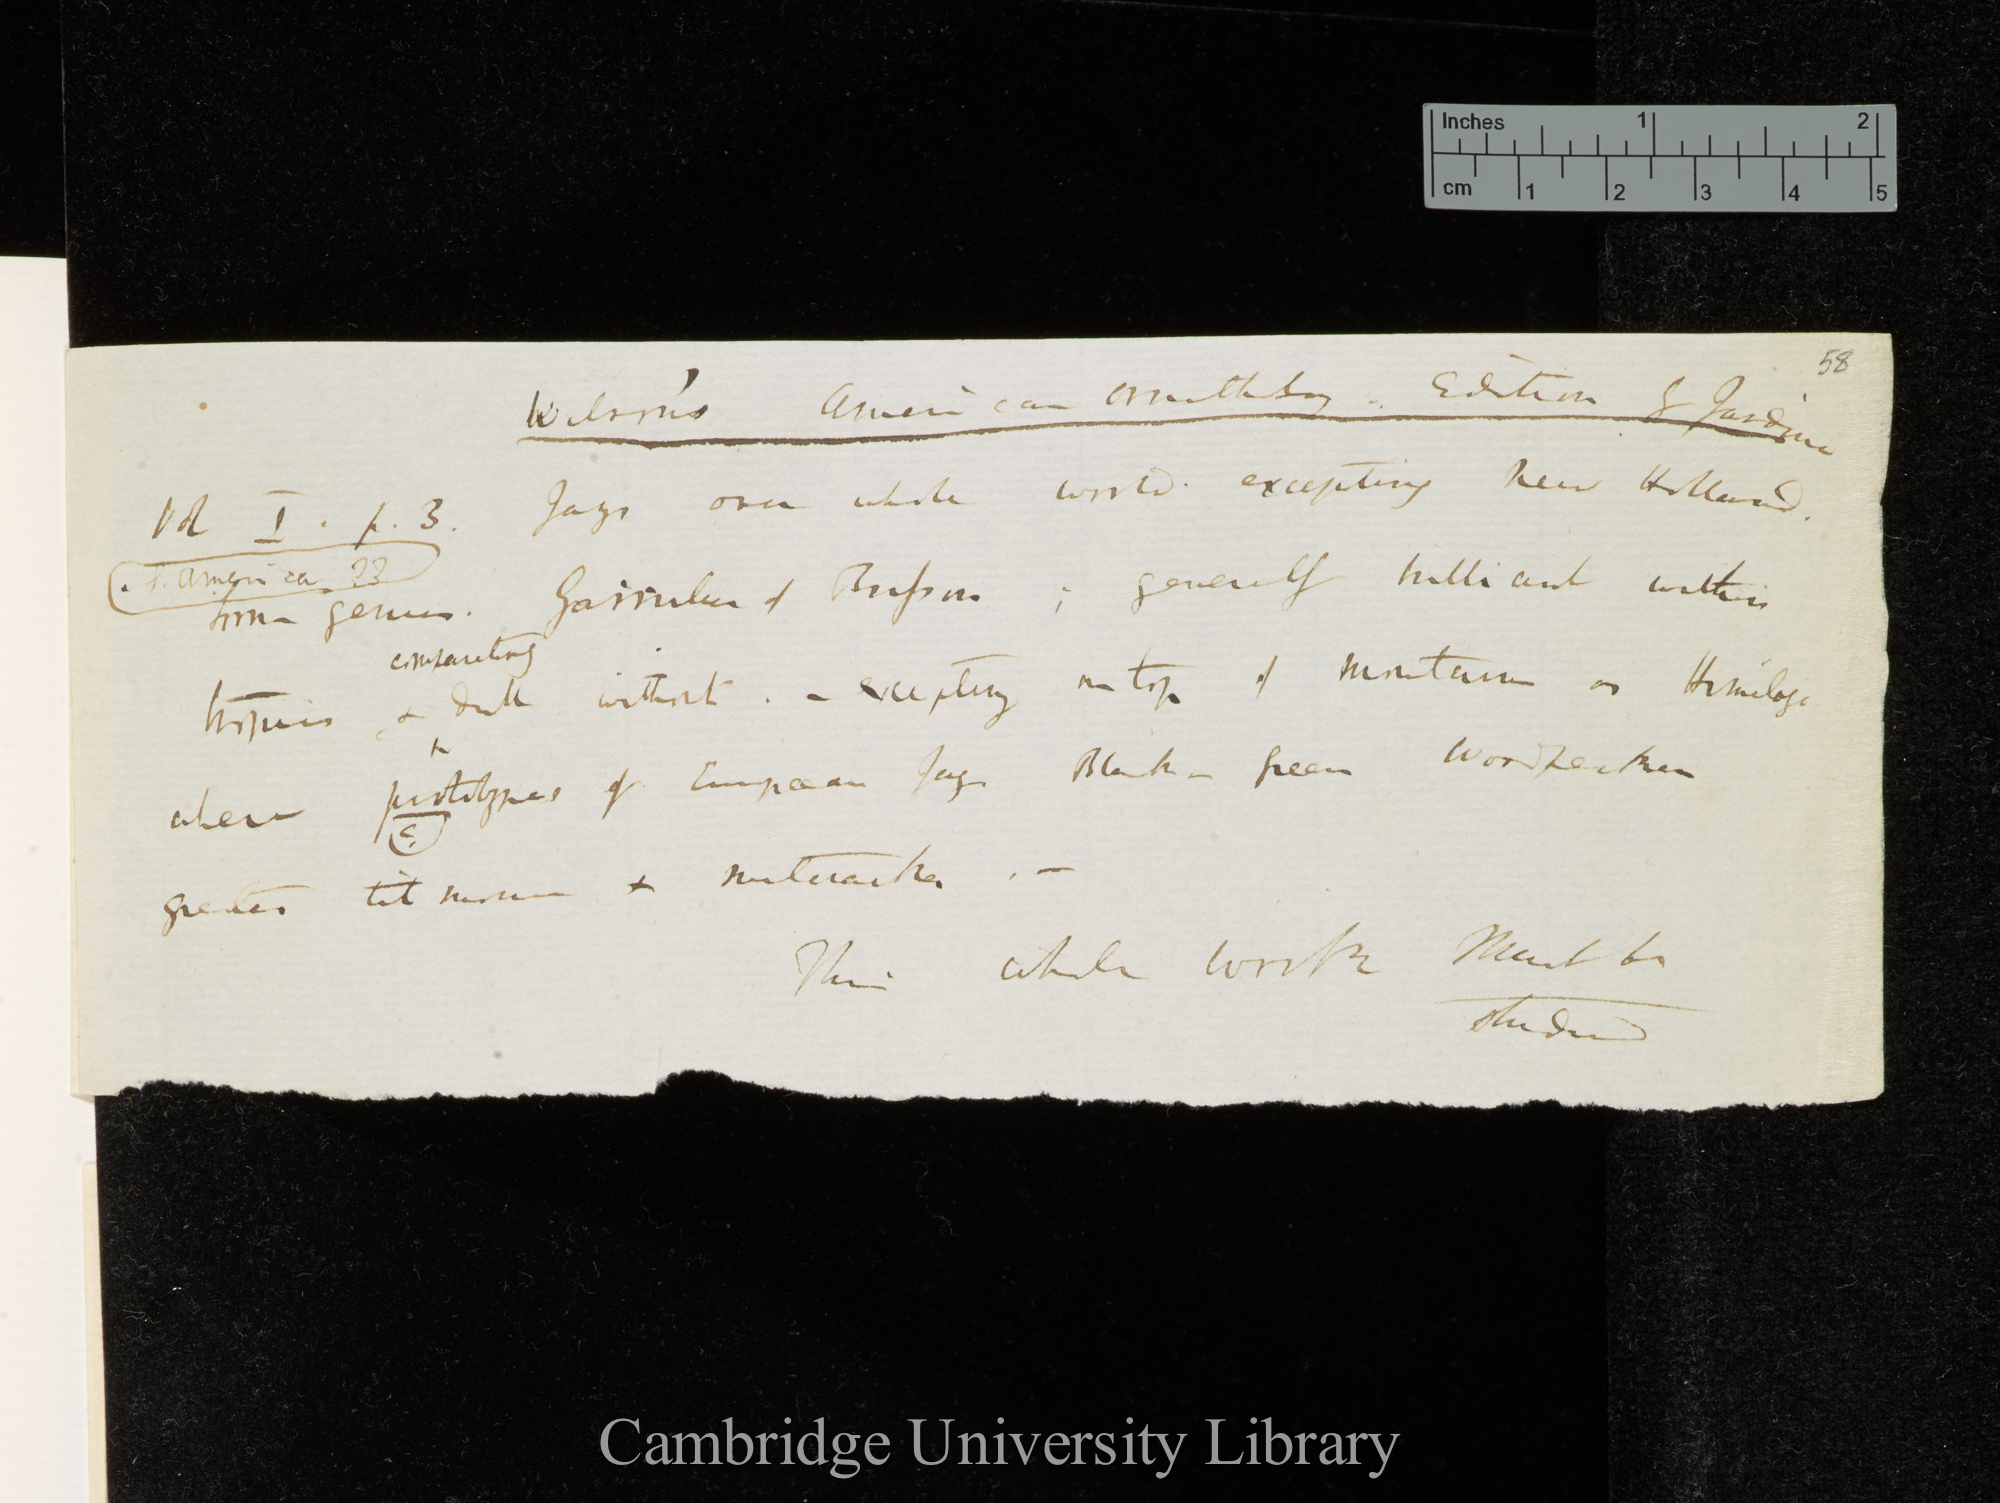 Inches 1 2
cm 1 2 3 4 5
58
Wilson's American Ornithology - Edition of Jardine
Vol I. p. 3. Jays over whole world. excepting New Holland.
S. America ??
form genus. Garrulus of Brisson ; generally brilliant within
comparatively
tropics & dull without. - excepting on top of mountains as Himalaya
where prototypes of European Jays Black & Green Woodpecker
greater tit mouse & nutcracker . —
This whole work Must be
studied
Cambridge University Library